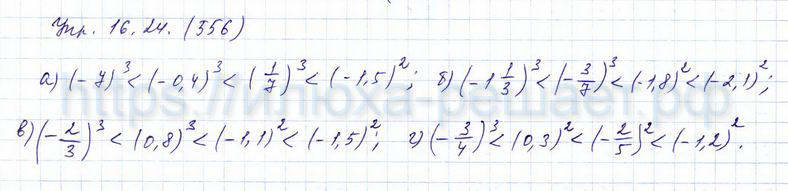 Упр. 16.24. (556)
а) (-7)³ < (-0,4)³ < (1/7)³ < (-1,5)²; б) (-1 1/3)³ < (-3/7)³ < (-1,8)² < (-2,1)²;
в) (-2/3)³ < (0,8)³ < (-1,1)² < (-1,5)²; г) (-3/4)³ < (0,3)² < (-2/5)² < (-1,2)².
https://илюха-решает.рф